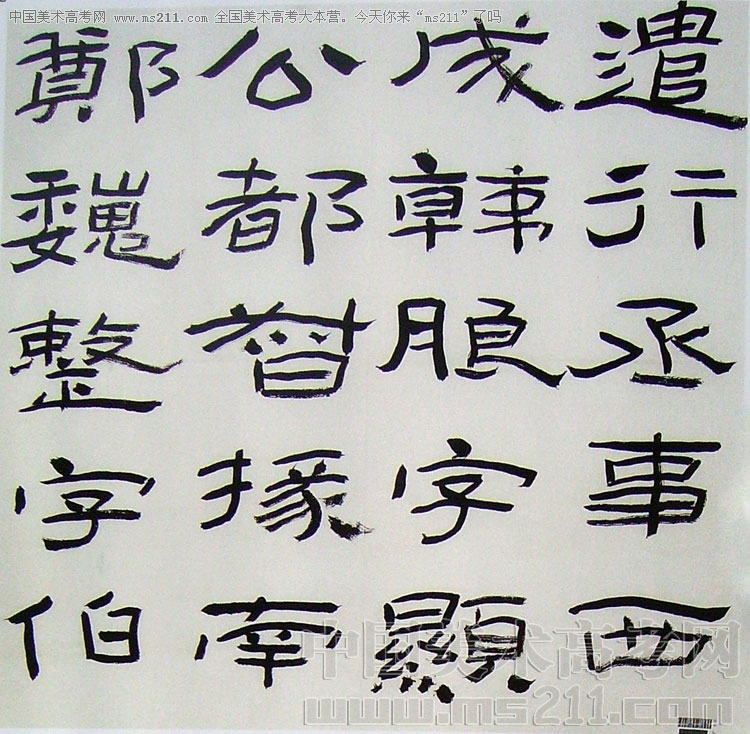 中国美术高考网 www.ms211.com 全国美术高考大本营。今天你来“ms211”了吗
遣行丞事西
成韓朖字顯
公都督掾南
鄭魏整字伯
中国美术高考网
www.ms211.com